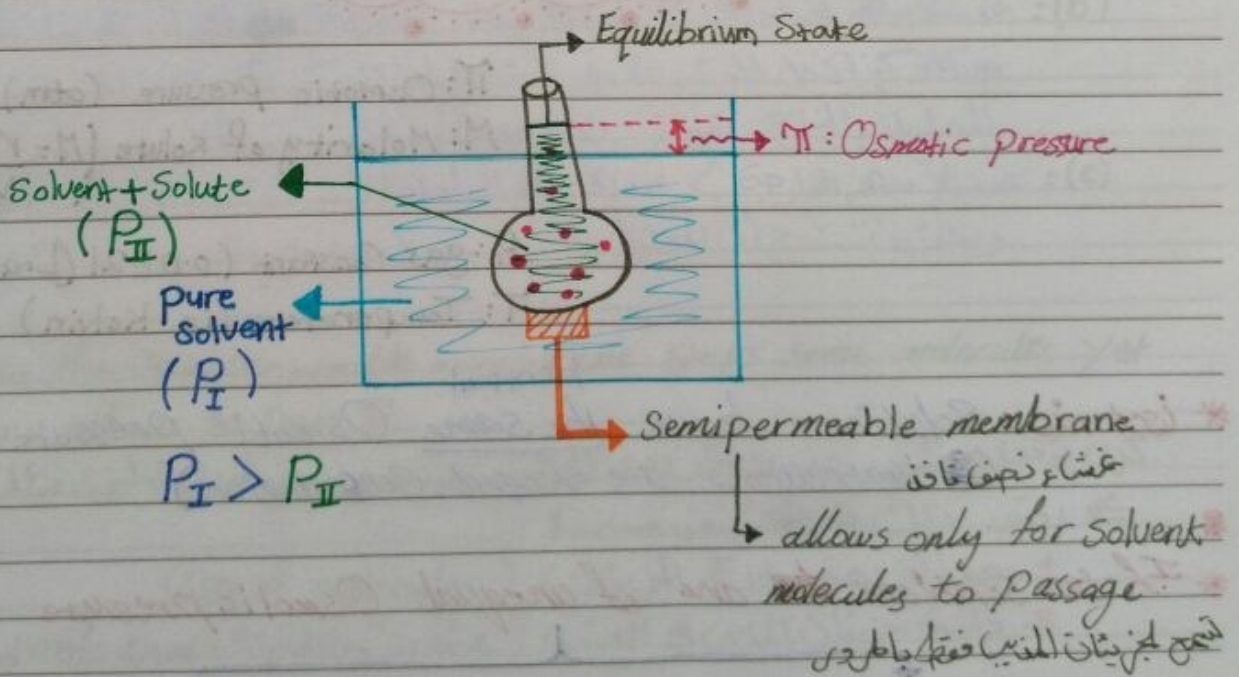 Equilibrium State
π : Osmotic pressure
Solvent + Solute
(P_II)
Pure
solvent
(P_I)
P_I > P_II
Semipermeable membrane
غشاء نصف نافذ
allows only for solvent
molecules to passage
تسمح لجزيئات المذيب فقط